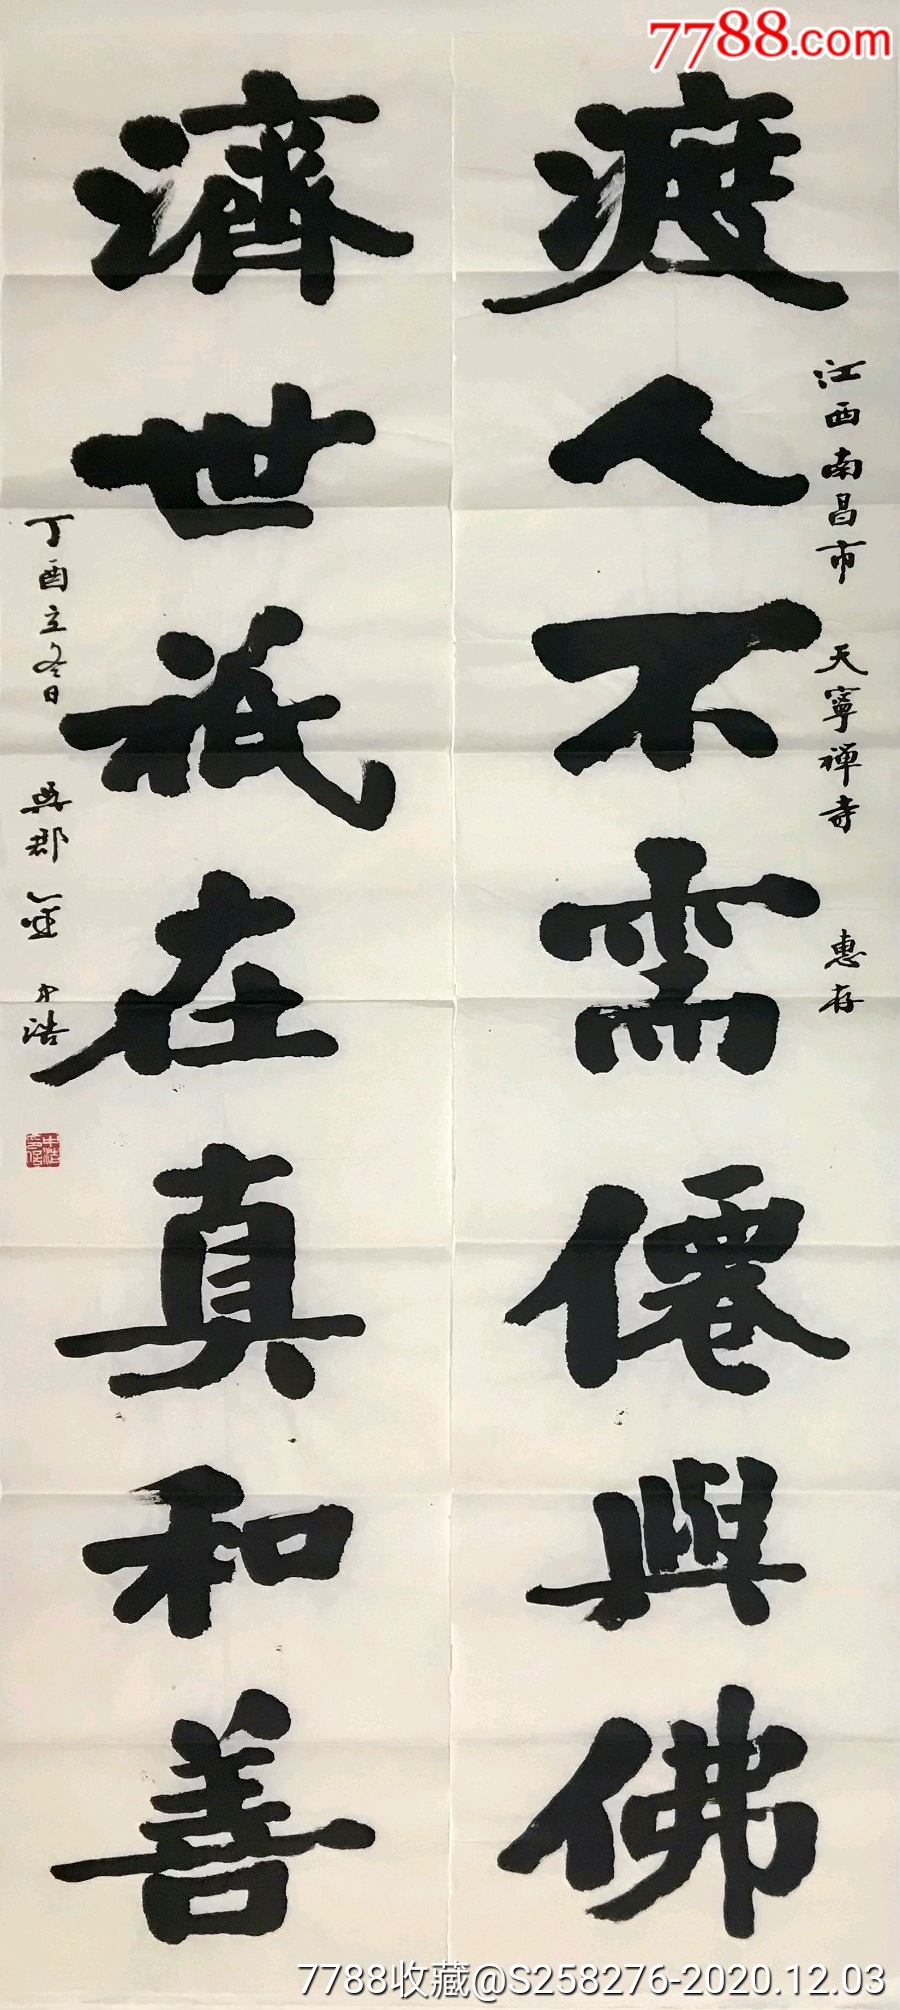 7788.com
江西南昌市 天寧禅寺 惠存
渡人不需僊與佛
濟世祇在真和善
丁酉立冬日 吳郡 金中浩
7788收藏@S258276-2020.12.03